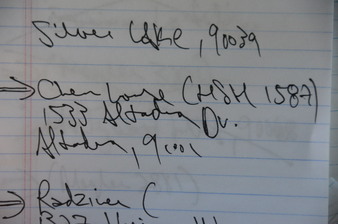 Silver Lake, 90039
⇒ Chen House (HSH 1587)
1533 Altadena Dr.
Altadena, 91001
⇒ Radziner (